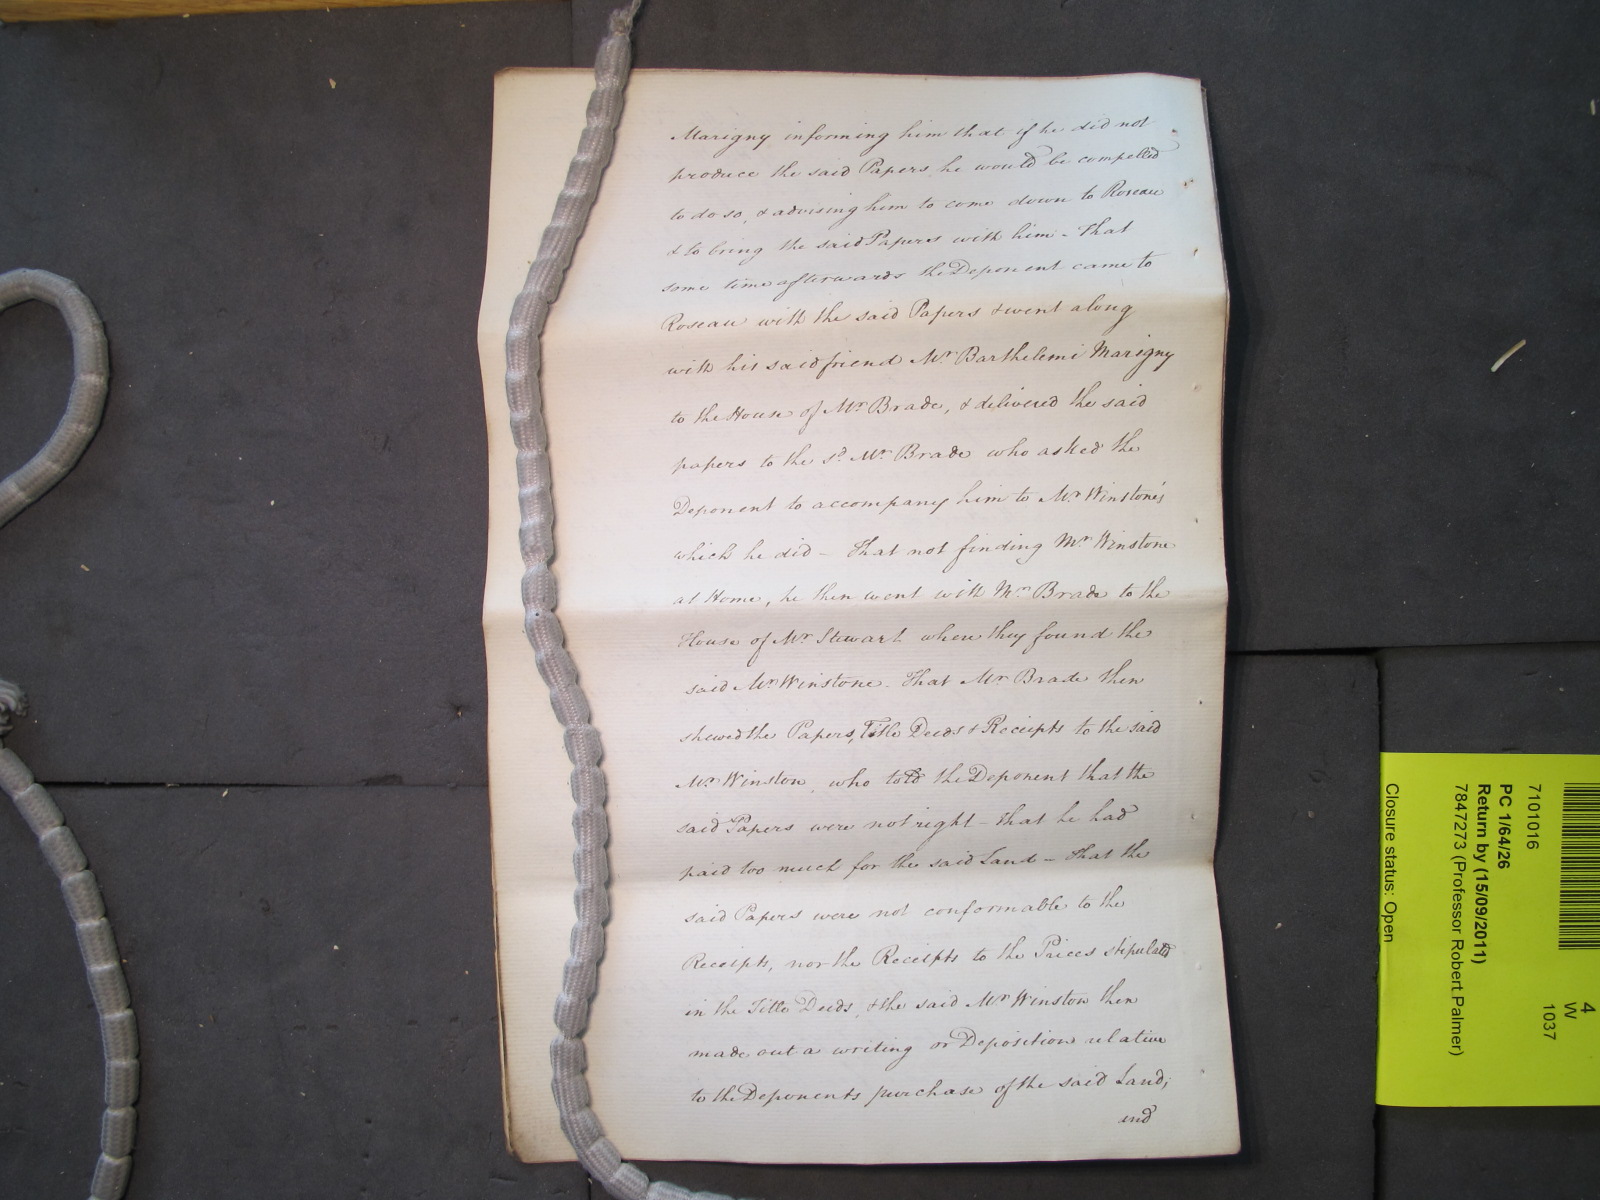 Marigny informing him that if he did not
produce the said Papers he would be compelled
to do so, & advising him to come down to Roseau
& to bring the said Papers with him - That
some time afterwards the Deponent came to
Roseau with the said Papers & went along
with his said friend Mr Barthelemi Marigny
to the House of Mr Brade, & delivered the said
papers to the sd Mr Brade who asked the
Deponent to accompany him to Mr Winstone's
which he did - That not finding Mr Winstone
at Home, he then went with Mr Brade to the
House of Mr Stewart where they found the
said Mr Winstone - That Mr Brade then
shewed the Papers, Title Deeds & Receipts to the said
Mr Winston, who told the Deponent that the
said Papers were not right - that he had
paid too much for the said Land - That the
said Papers were not conformable to the
Receipts, nor the Receipts to the Prices stipulated
in the Title Deeds, & the said Mr Winston then
made out a writing or Deposition relative
to the Deponents purchase of the said Land;
and
7101016
PC 1/64/26
Return by (15/09/2011)
7847273 (Professor Robert Palmer)
Closure status: Open
4
W
1037